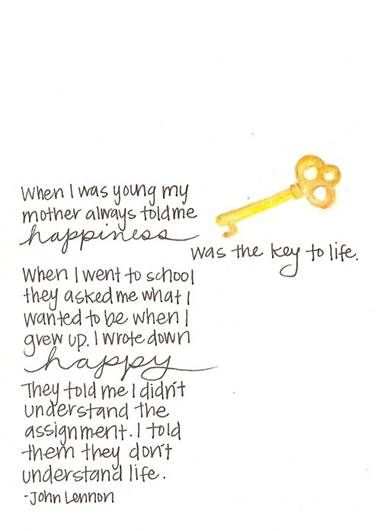 When I was young my
mother always told me
happiness
was the key to life.
When I went to school
they asked me what I
wanted to be when I
grew up. I wrote down
happy
They told me I didn't
understand the
assignment. I told
them they don't
understand life.
-John Lennon